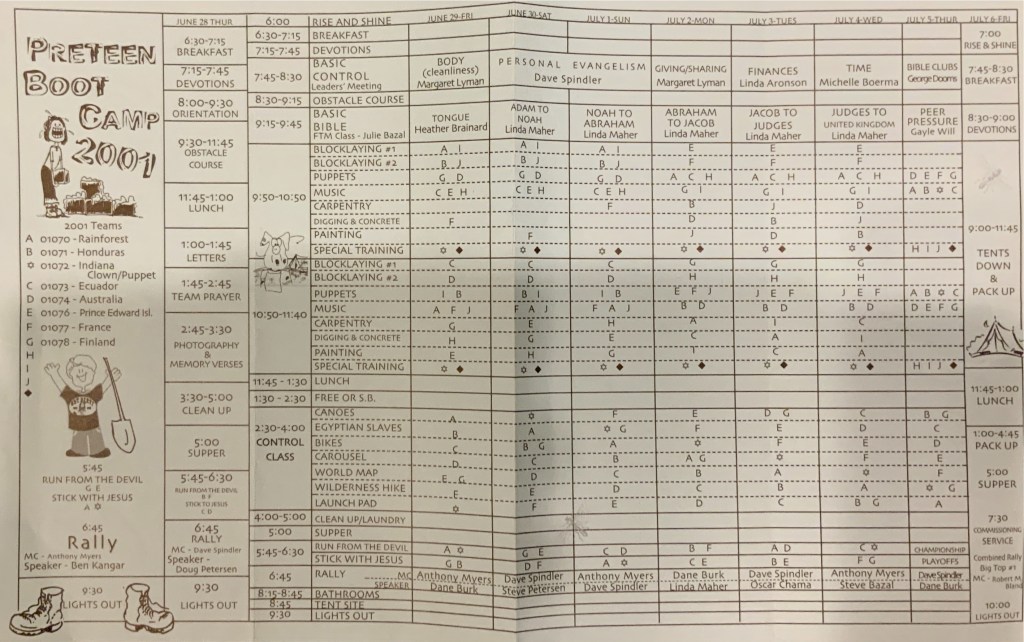 PRETEEN
BOOT
CAMP
2001
2001 Teams
A 01070 - Rainforest
B 01071 - Honduras
✡ 01072 - Indiana
Clown/Puppet
C 01073 - Ecuador
D 01074 - Australia
E 01076 - Prince Edward Isl.
F 01077 - France
G 01078 - Finland
H
I
J
◆
5:45
RUN FROM THE DEVIL
G E
STICK WITH JESUS
A ✡
6:45
Rally
MC - Anthony Myers
Speaker - Ben Kangar
9:30
LIGHTS OUT
JUNE 28 THUR
6:30-7:15
BREAKFAST
7:15-7:45
DEVOTIONS
8:00-9:30
ORIENTATION
9:30-11:45
OBSTACLE
COURSE
11:45-1:00
LUNCH
1:00-1:45
LETTERS
1:45-2:45
TEAM PRAYER
2:45-3:30
PHOTOGRAPHY
&
MEMORY VERSES
3:30-5:00
CLEAN UP
5:00
SUPPER
5:45-6:30
RUN FROM THE DEVIL
B F
STICK TO JESUS
C D
6:45
RALLY
MC - Dave Spindler
Speaker -
Doug Petersen
9:30
LIGHTS OUT
6:00 RISE AND SHINE JUNE 29-FRI JUNE 30-SAT JULY 1-SUN JULY 2-MON JULY 3-TUES JULY 4-WED JULY 5-THUR
6:30-7:15 BREAKFAST
7:15-7:45 DEVOTIONS
7:45-8:30 BASIC CONTROL Leaders' Meeting BODY (cleanliness) Margaret Lyman PERSONAL EVANGELISM Dave Spindler GIVING/SHARING Margaret Lyman FINANCES Linda Aronson TIME Michelle Boerma BIBLE CLUBS George Dooms
8:30-9:15 OBSTACLE COURSE
9:15-9:45 BASIC BIBLE FTM Class - Julie Bazal TONGUE Heather Brainard ADAM TO NOAH Linda Maher NOAH TO ABRAHAM Linda Maher ABRAHAM TO JACOB Linda Maher JACOB TO JUDGES Linda Maher JUDGES TO UNITED KINGDOM Linda Maher PEER PRESSURE Gayle Will
9:50-10:50
BLOCKLAYING #1 A I A I A I E E E
BLOCKLAYING #2 B J B J B J F F F
PUPPETS G D G D G D A C H A C H A C H D E F G
MUSIC C E H C E H C E H G I G I G I A B ✡ C
CARPENTRY F B J D
DIGGING & CONCRETE F D B J
PAINTING F J D B
SPECIAL TRAINING ✡ ◆ ✡ ◆ ✡ ◆ ✡ ◆ ✡ ◆ ✡ ◆ H I J ◆
10:50-11:40
BLOCKLAYING #1 C C C G G G
BLOCKLAYING #2 D D D H H H
PUPPETS I B B I I B E F J J E F J E F A B ✡ C
MUSIC A F J F A J F A J B D B D B D D E F G
CARPENTRY G E H A I C
DIGGING & CONCRETE H G E C A I
PAINTING E H G I C A
SPECIAL TRAINING ✡ ◆ ✡ ◆ ✡ ◆ ✡ ◆ ✡ ◆ ✡ ◆ H I J ◆
11:45 - 1:30 LUNCH
1:30 - 2:30 FREE OR S.B.
2:30-4:00 CONTROL CLASS
CANOES A ✡ F E D G C B G
EGYPTIAN SLAVES B A ✡ G F E D C
BIKES C B G A ✡ F E D
CAROUSEL D C B A G ✡ F E
WORLD MAP E G D C B A ✡ F
WILDERNESS HIKE F E D C B A ✡ G
LAUNCH PAD ✡ F E D C B G A
4:00-5:00 CLEAN UP/LAUNDRY
5:00 SUPPER
5:45-6:30 RUN FROM THE DEVIL A ✡ G E C D B F A D C ✡ CHAMPIONSHIP
STICK WITH JESUS G B D F A ✡ C E B E F G PLAYOFFS
6:45 RALLY MC Anthony Myers Dave Spindler Anthony Myers Dane Burk Dave Spindler Anthony Myers Dave Spindler
SPEAKER Dane Burk Steve Petersen Dave Spindler Linda Maher Oscar Chama Steve Bazal Dane Burk
8:15-8:45 BATHROOMS
8:45 TENT SITE
9:30 LIGHTS OUT
JULY 6-FRI
7:00
RISE & SHINE
7:45-8:30
BREAKFAST
8:30-9:00
DEVOTIONS
9:00-11:45
TENTS
DOWN
&
PACK UP
11:45-1:00
LUNCH
1:00-4:45
PACK UP
5:00
SUPPER
7:30
COMMISSIONING
SERVICE
Combined Rally
Big Top #1
MC - Robert M.
Bland
10:00
LIGHTS OUT